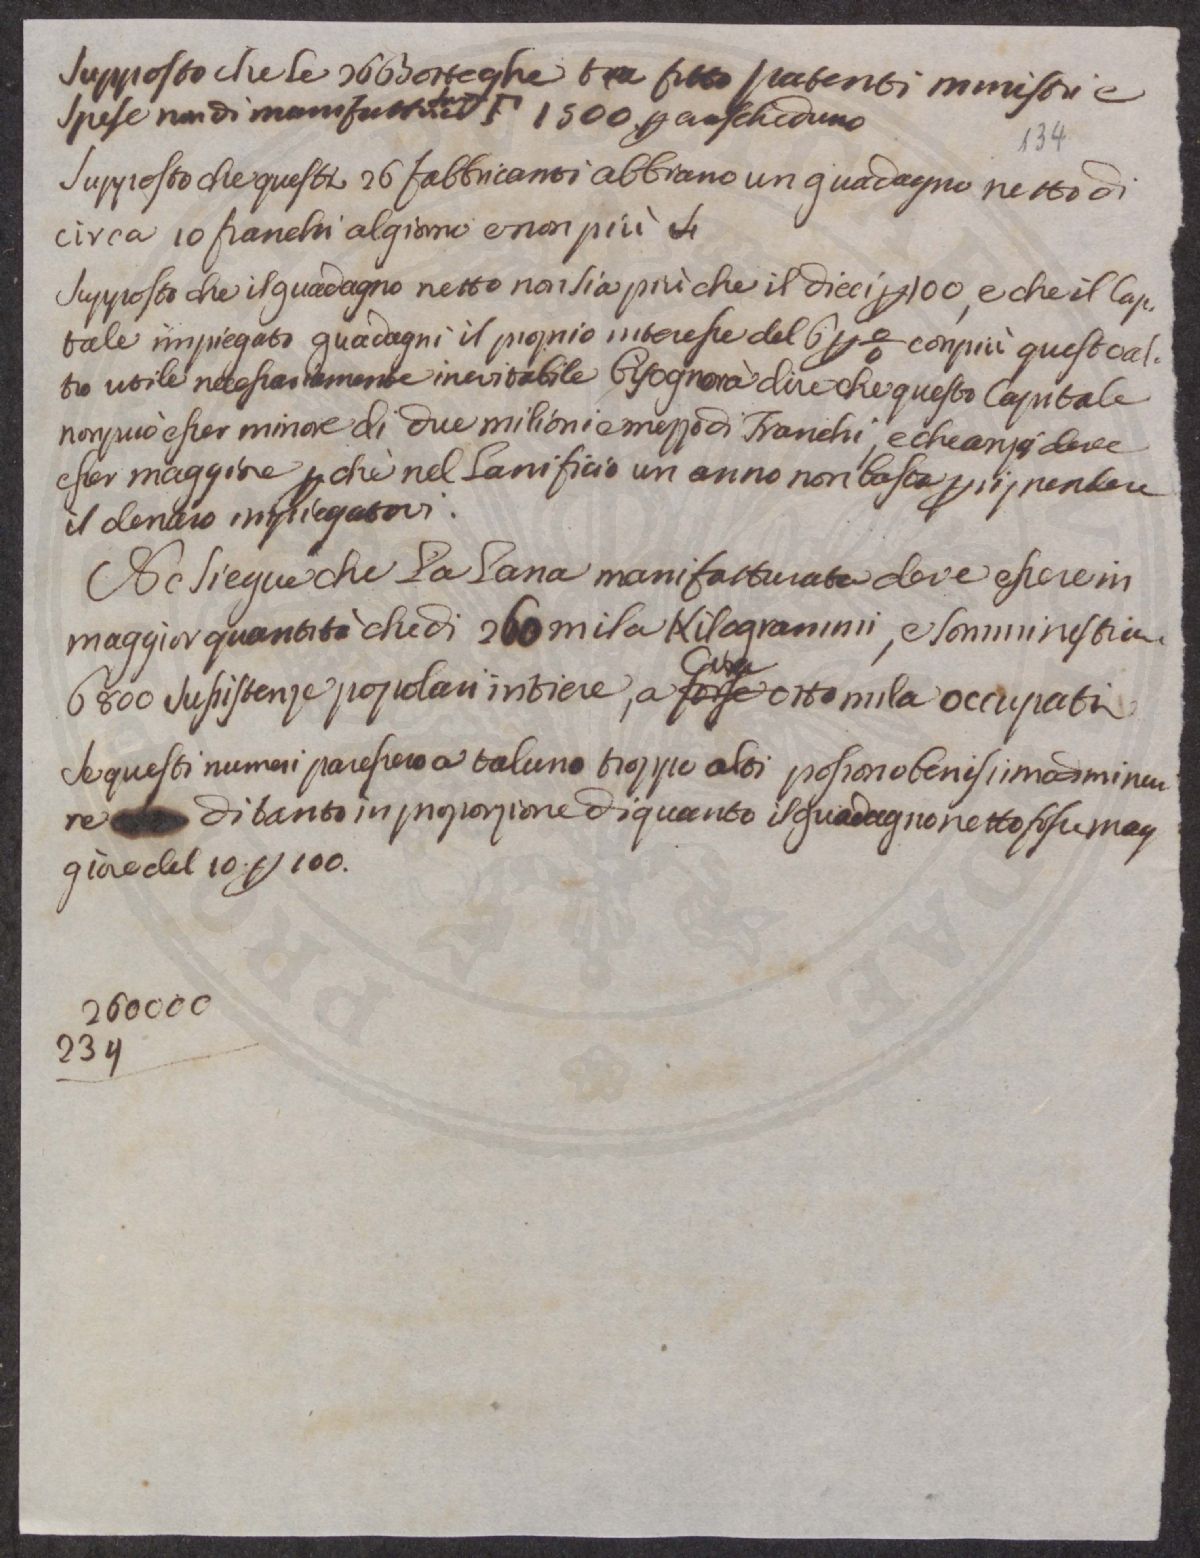 Supposto che le 26 Botteghe tra fitto patenti ministri e
Spese non di manifattura F 1500 p caascheduno
134
Supposto che questi 26 fabbricanti abbiano un guadagno netto di
circa 10 franchi al giorno e non più
Supposto che il guadagno netto non sia più che il dieci p 100, e che il Capi-
tale impiegato guadagni il proprio interesse del 6 p % con più quest'al-
tro utile necessariamente inevitabile Bisognerà dire che questo Capitale
non può esser minore di due milioni e mezzo di Franchi, e che anzi deve
esser maggiore p chè nel Lanificio un anno non basta p riprendere
il denaro impiegatovi.
Ne siegue che La Lana manifatturata deve essere in
maggior quantità che di 260 mila Kilogrammi, e somministrare
6800 sussistenze popolari intiere, a forse otto mila occupati
Circa
Se questi numeri paressero a taluno troppo alti possono benissimo diminui
re di tanto in proporzione di quanto il guadagno netto fosse mag
giore del 10 p 100.
260000
234